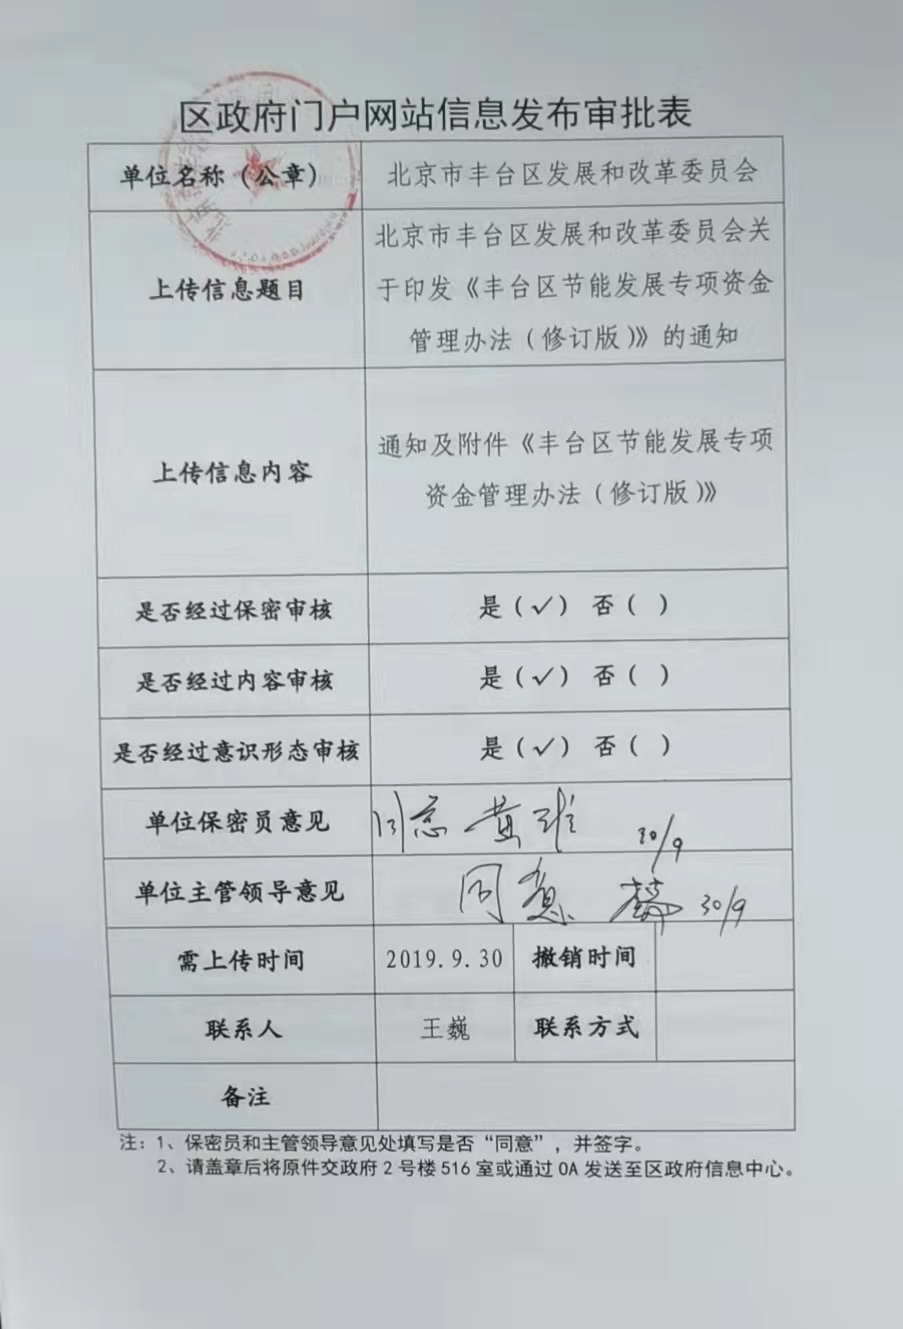 区政府门户网站信息发布审批表
单位名称（公章） 北京市丰台区发展和改革委员会
上传信息题目 北京市丰台区发展和改革委员会关
于印发《丰台区节能发展专项资金
管理办法（修订版）》的通知
上传信息内容 通知及附件《丰台区节能发展专项
资金管理办法（修订版）》
是否经过保密审核 是（✓） 否（ ）
是否经过内容审核 是（✓） 否（ ）
是否经过意识形态审核 是（✓） 否（ ）
单位保密员意见 同意 黄 30/9
单位主管领导意见 同意 30/9
需上传时间 2019.9.30 撤销时间
联系人 王巍 联系方式
备注
注：1、保密员和主管领导意见处填写是否“同意”，并签字。
2、请盖章后将原件交政府2号楼516室或通过OA发送至区政府信息中心。